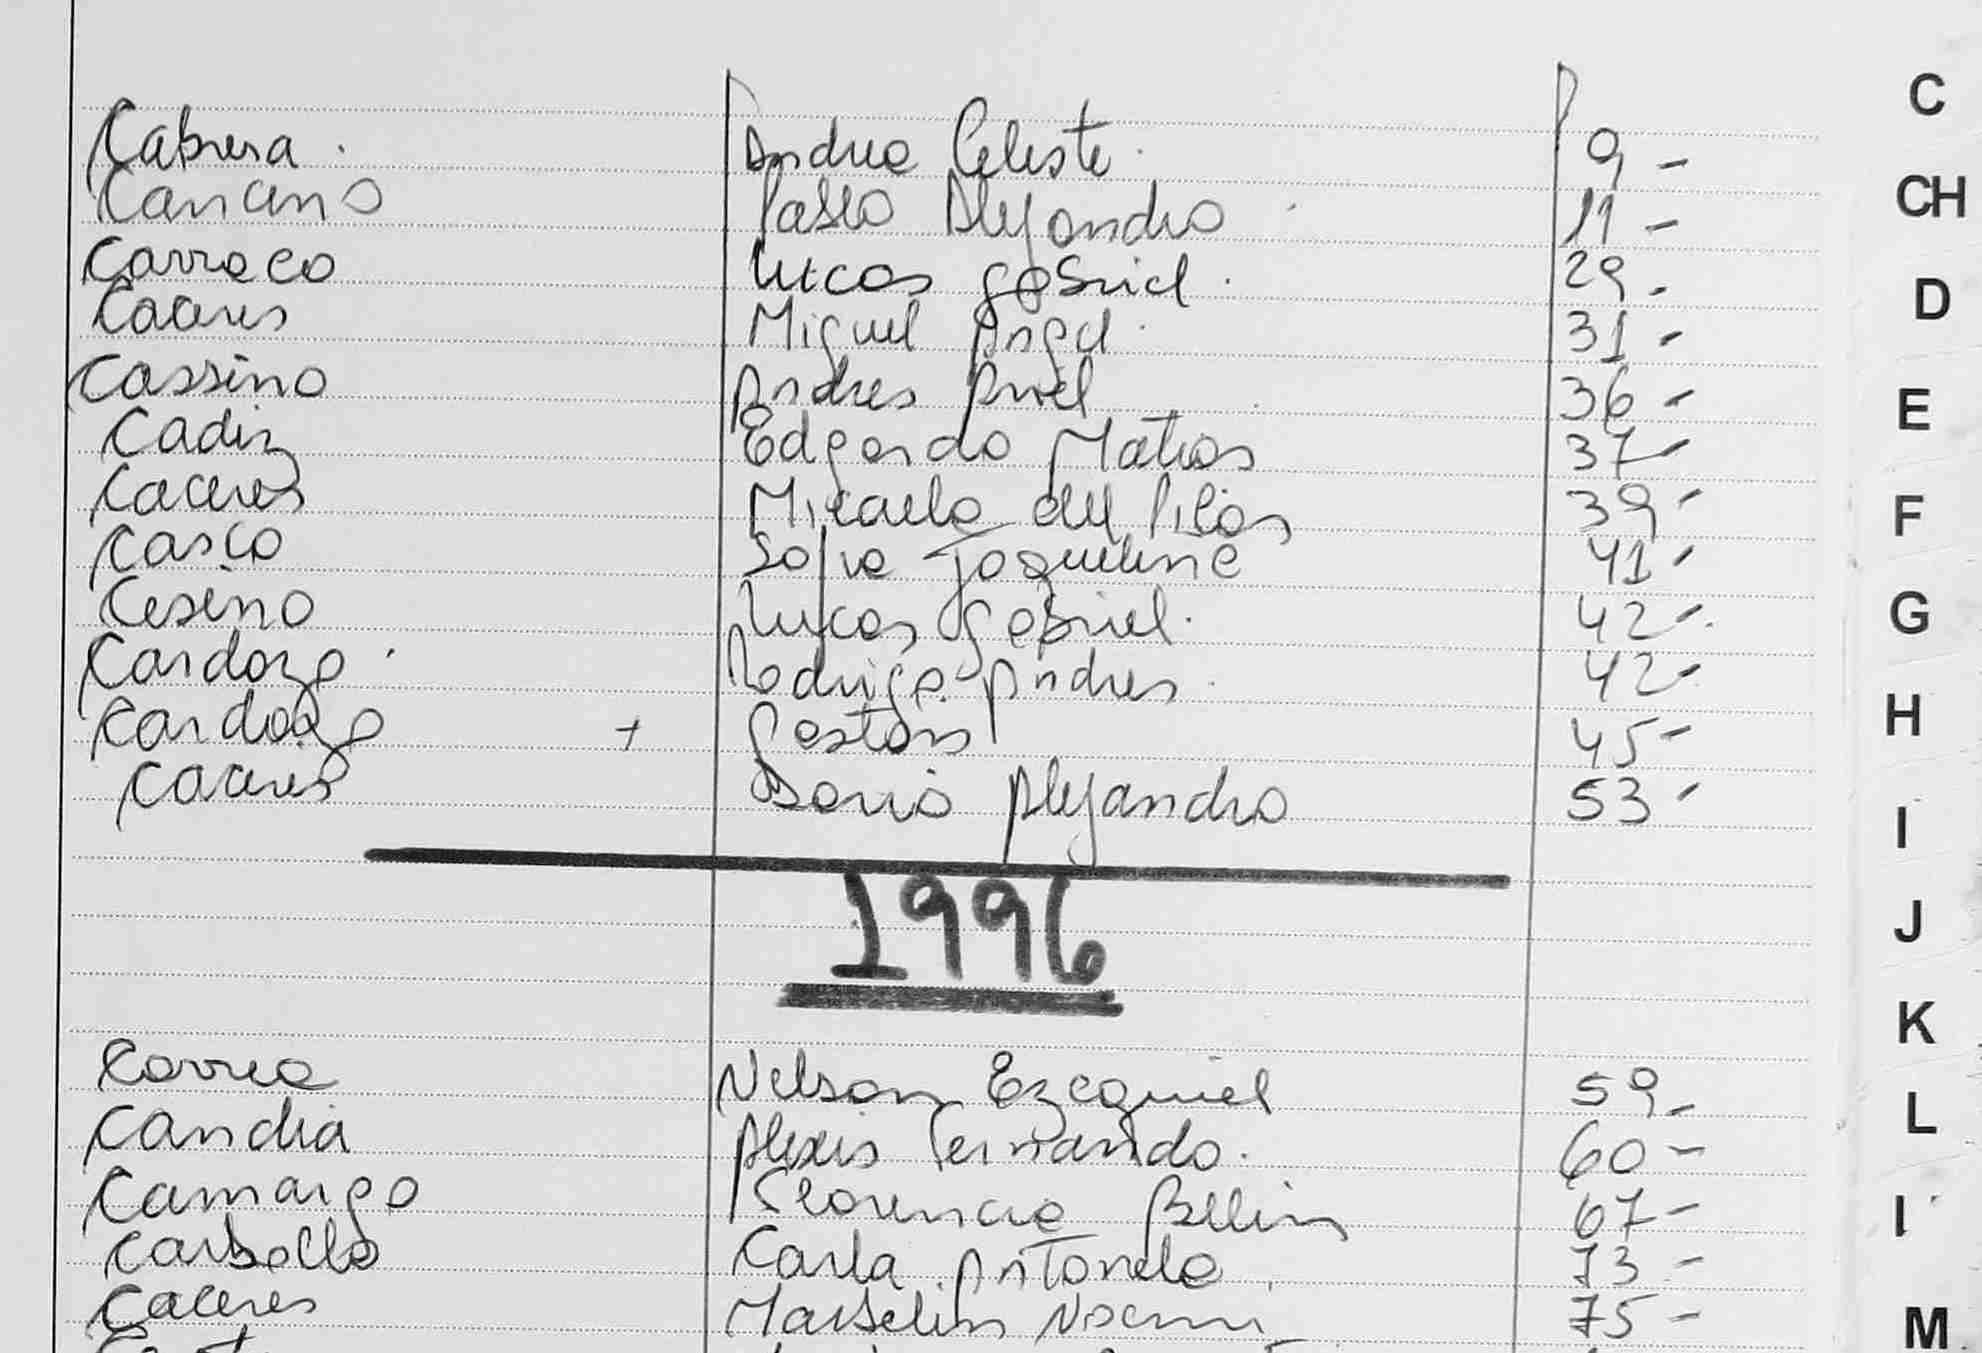 Cabrera. Andrea Celeste. 9 -
Canano Pablo Alejandro 11 -
Carraco Lucas Gabriel. 29 -
Caceres Miguel Angel. 31 -
Cassino Andres Ariel 36 -
Cadiz Edgardo Matias 37 -
Caceres Micaela del Pilar 39 -
Casco Sofia Joqueline 41 -
Ceseno Lucas Gabriel. 42 -
Cardozo Rodrigo Andres. 42 -
Cardozo + Gaston 45 -
Caceres Dario Alejandro 53 -
1996
Correa Nelson Ezequiel 59 -
Candia Alexis Fernando. 60 -
Camargo Florencia Belen 67 -
Carballo Carla Antonela 73 -
Caceres Noemi 75 -
C
CH
D
E
F
G
H
I
J
K
L
M